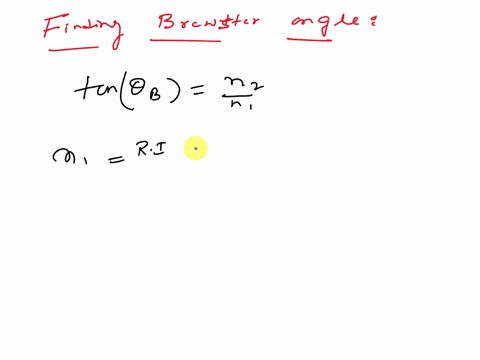 Finding Brewster angle:
tan(θ_B) = n₂/n₁
n₁ = R.I